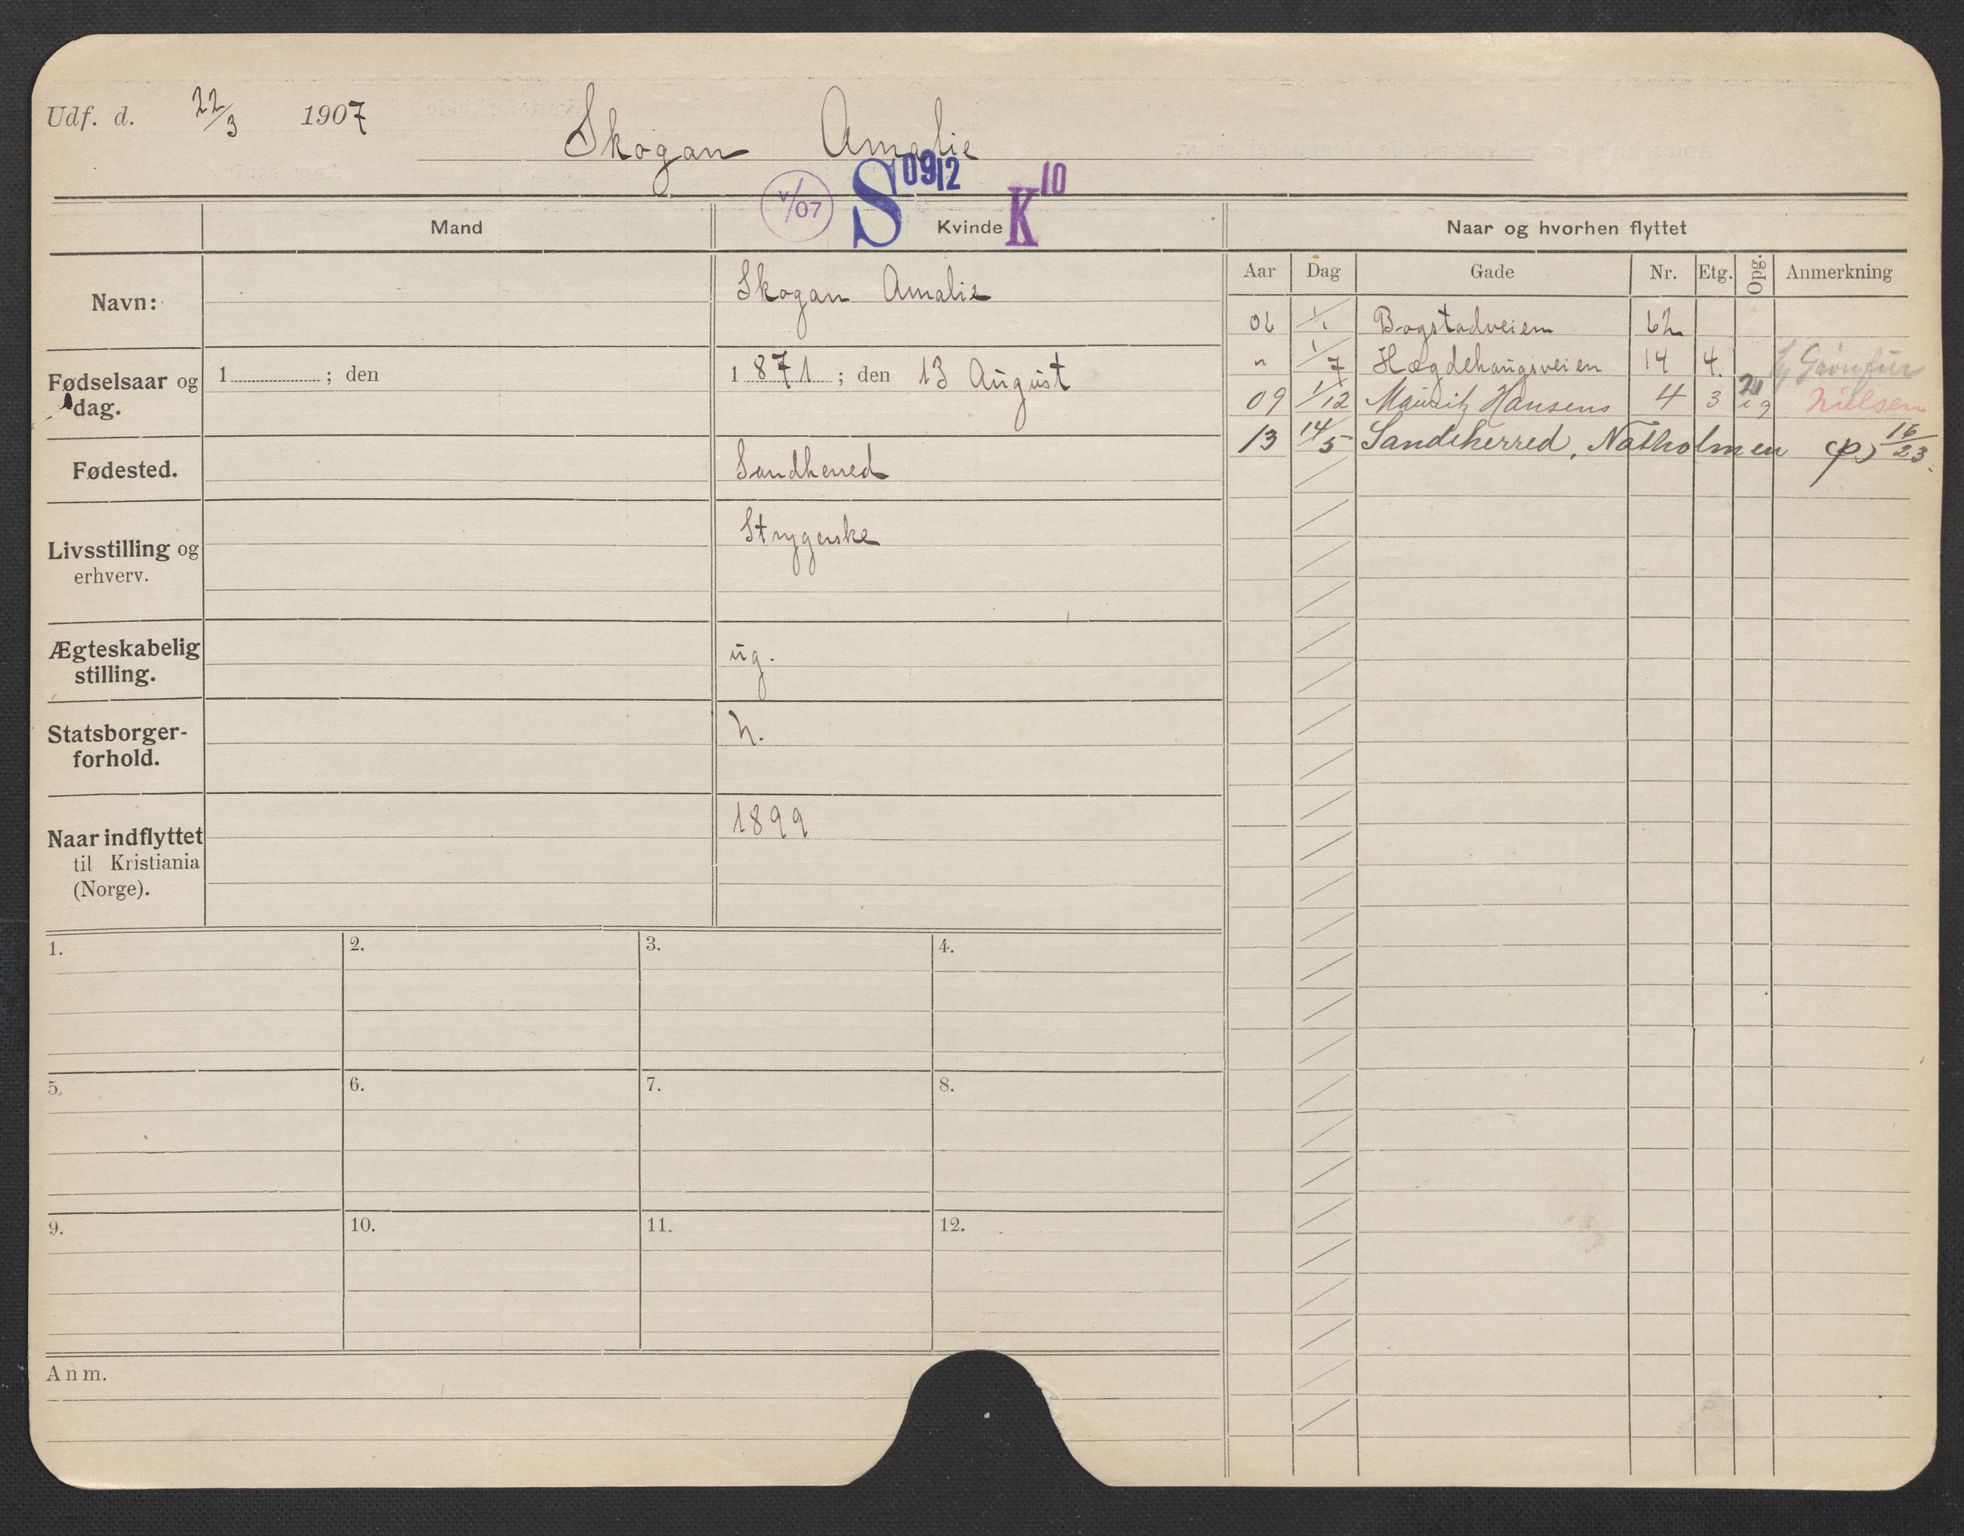 Udf. d. 22/3 1907
Skogan Amalie
V/07 S 0912 K 10
Mand Kvinde Naar og hvorhen flyttet
Aar Dag Gade Nr. Etg. Opg. Anmerkning
Navn: Skogan Amalie
06 1/1 Bogstadveien 62
Fødselsaar og dag. 1 ; den 1871 ; den 13 August
" 1/7 Hægdehaugsveien 14 4.
09 1/12 Mauritz Hansens 4 3 Nielsen
13 14/5 Sandeherred, Natholmen 15/23.
Fødested. Sandherred
Livsstilling og erhverv. Strygerske
Ægteskabelig stilling. ug.
Statsborger-
forhold. n.
Naar indflyttet
til Kristiania
(Norge). 1899
1. 2. 3. 4.
5. 6. 7. 8.
9. 10. 11. 12.
Anm.